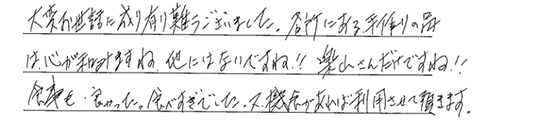 大変お世話に成り有り難うございました。各所にある手作りの品
は、心が和みますね。他にはないですね!! 巣山さんだけですね!!
食事も良かった。食べすぎでした。又、機会があれば利用させて頂きます。